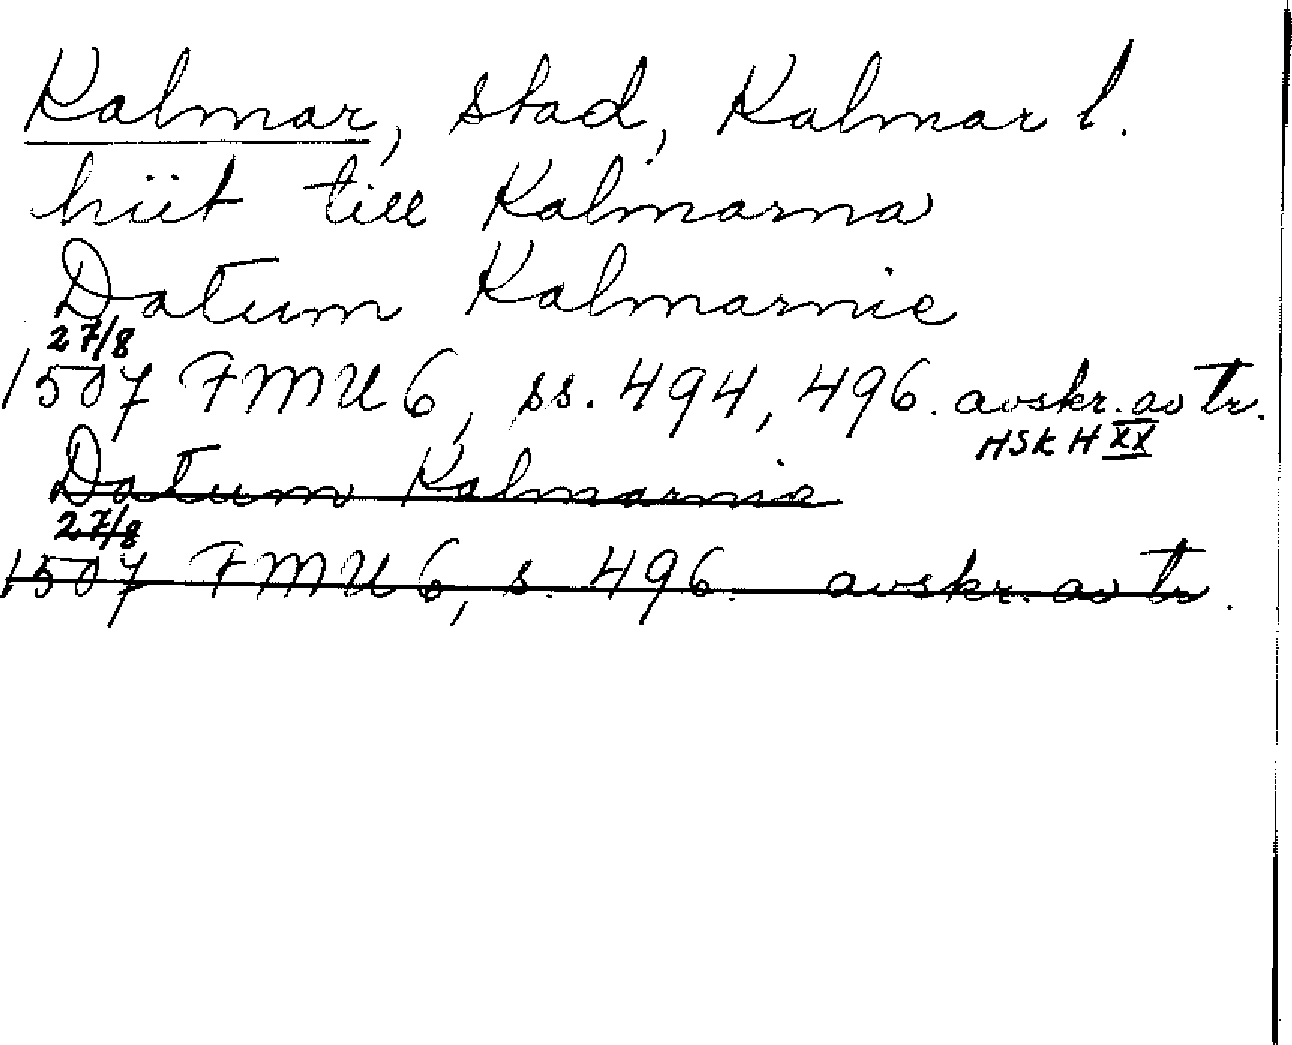 Kalmar, stad, Kalmar l.
hiit till Kalmarna
Datum Kalmarnie
27/8
1507 FMU 6, ss. 494, 496. avskr. av tr.
HSKH XX
Datum Kalmarnia
27/8
1507 FMU 6, s. 496. avskr. av tr.